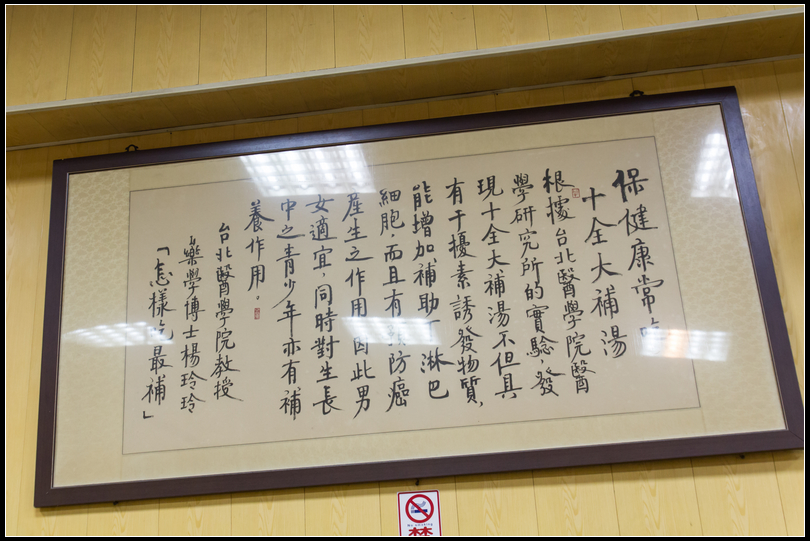 保健康常
十全大補湯
根據台北醫學院醫
學研究所的實驗,發
現十全大補湯不但具
有干擾素誘發物質,
能增加補助丁淋巴
細胞,而且有預防癌
產生之作用因此男
女適宜,同時對生長
中之青少年亦有補
養作用。
台北醫學院教授
藥學博士楊玲玲
「怎樣吃最補」
No smoking
禁